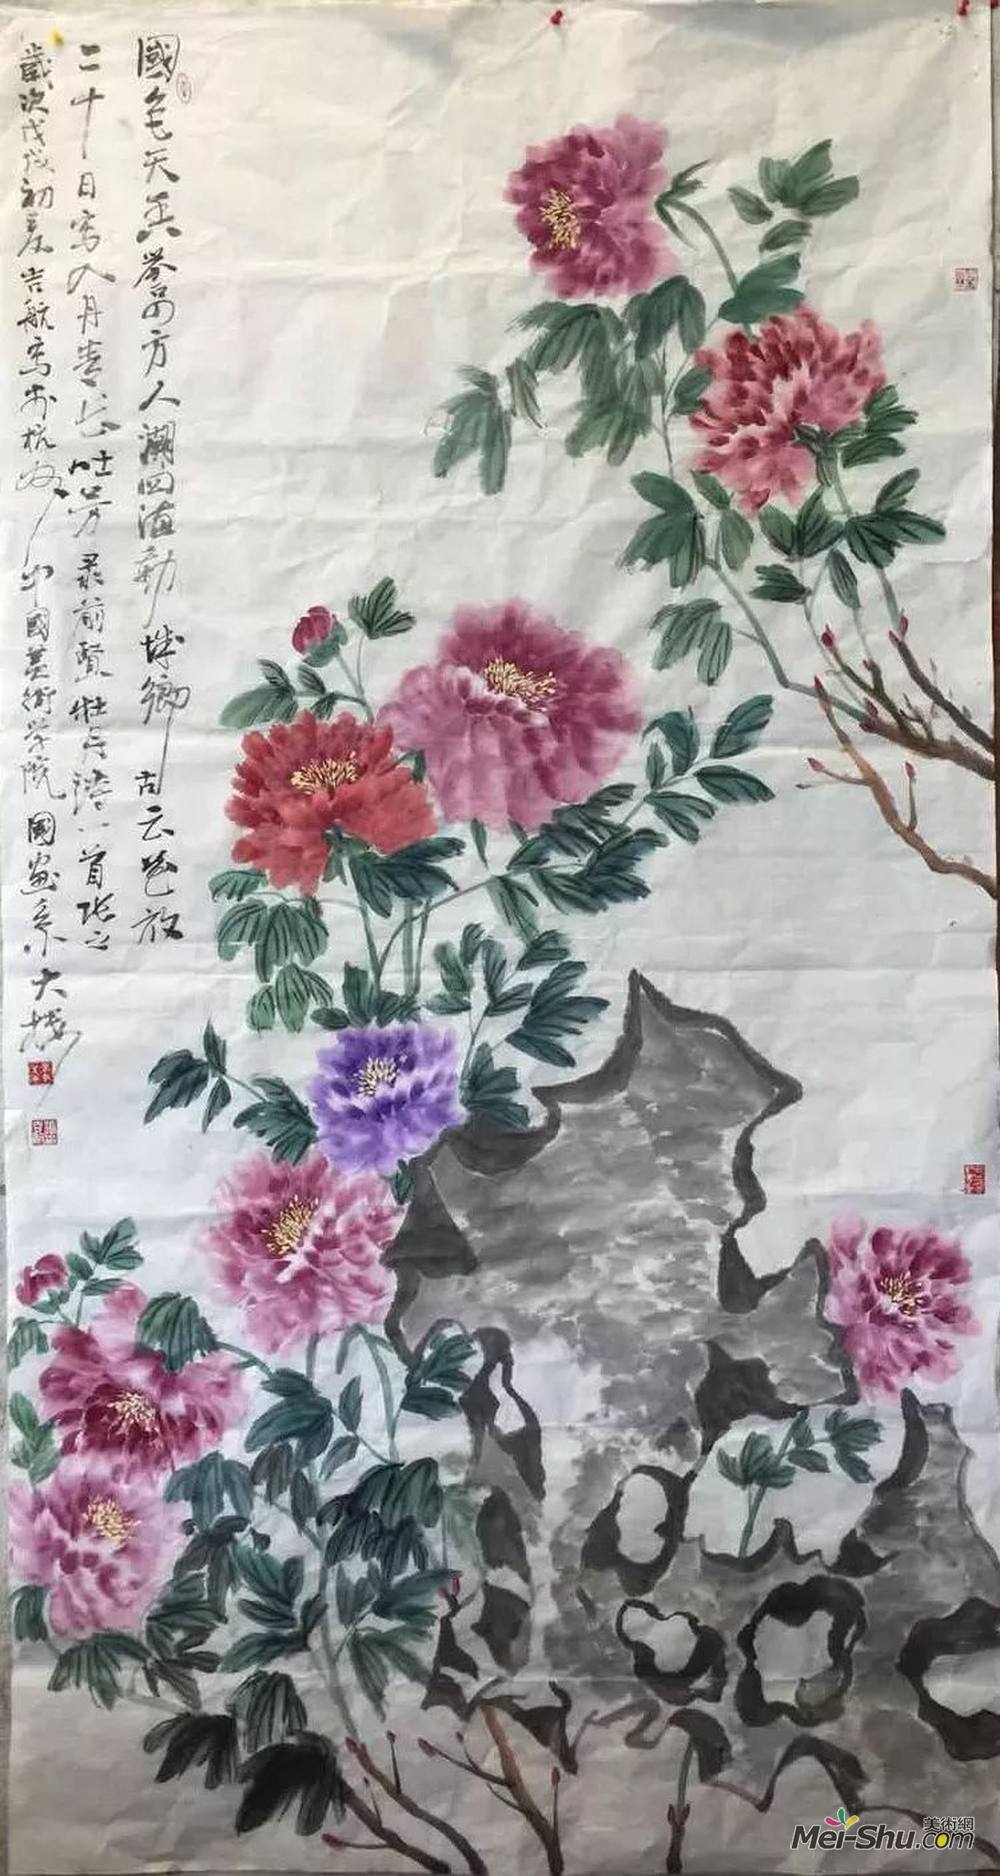 國色天香誉四方人潮四海動城鄉古云花放
二十日写入丹青长吐芳录前賢牡丹诗一首张之
歲次戊戌初夏吉航寫於杭州中國美術学院國畫系大楼
美術網
Mei-Shu.com